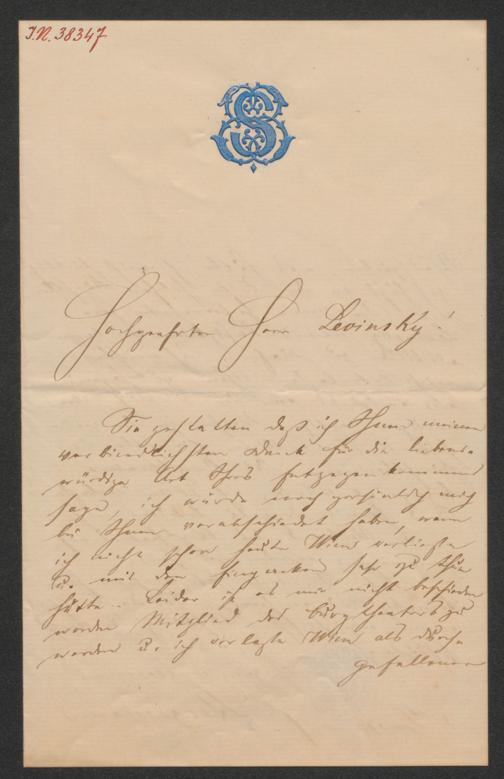 I.N. 38347
S
Hochgeehrter Herr Levinsky!
Sie gestatten daß ich Ihnen meinen
verbindlichsten Dank für die liebens-
würdige Art Ihres Entgegenkommens
sage, ich würde noch persönlich mich
bei Ihnen verabschiedet haben, wenn
ich nicht schon heute Wien verließe
u. mit dem Einpacken sehr zu thun
hätte. Leider ist es mir nicht beschieden
worden Mitglied des Burgtheaters zu
werden u. ich verlasse Wien als durch-
gefallener